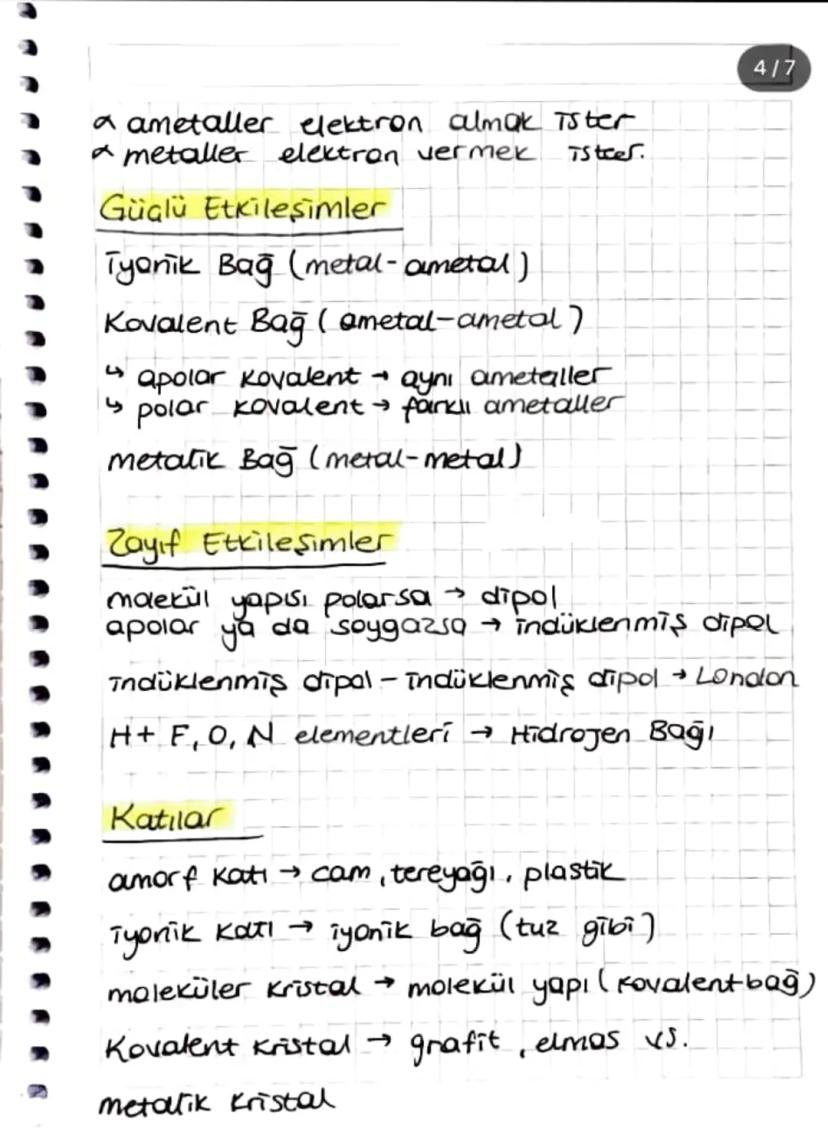 4/7
∝ ametaller elektron almak ister
∝ metaller elektron vermek ister.
Güçlü Etkileşimler
iyonik Bağ (metal-ametal)
Kovalent Bağ (ametal-ametal)
↳ apolar kovalent → aynı ametaller
↳ polar kovalent → farklı ametaller
metalik Bağ (metal-metal)
Zayıf Etkileşimler
molekül yapısı polarsa → dipol
apolar ya da soygazsa → indüklenmiş dipol
indüklenmiş dipol - indüklenmiş dipol → London
H+ F, O, N elementleri → Hidrojen Bağı
Katılar
amorf katı → cam, tereyağı, plastik
iyonik katı → iyonik bağ (tuz gibi)
moleküler kristal → molekül yapı (kovalent bağ)
Kovalent kristal → grafit, elmas vs.
metalik kristal